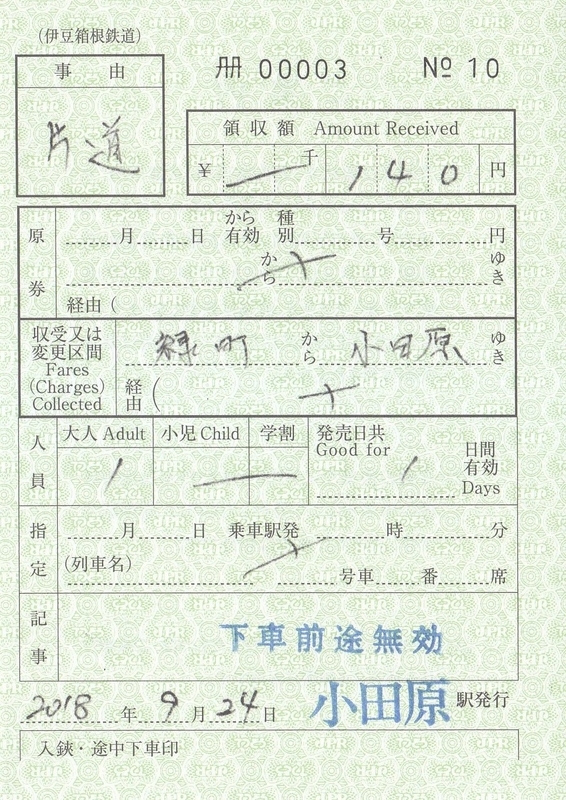 (伊豆箱根鉄道)
事由
片道
冊 00003 № 10
領収額 Amount Received
￥ 千 140 円
原券
月 日 から有効 種別 号 円
から ゆき
経由(
収受又は変更区間 Fares (Charges) Collected
緑町 から 小田原 ゆき
経由(
人員
大人 Adult 小児 Child 学割 発売日共 Good for 日間有効 Days
1 1
指定
月 日 乗車駅発 時 分
(列車名) 号車 番 席
記事
下車前途無効
2018 年 9 月 24 日 小田原 駅発行
入鋏・途中下車印